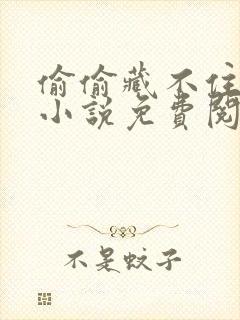 偷偷藏不住
小说免費閱
不是蚊子